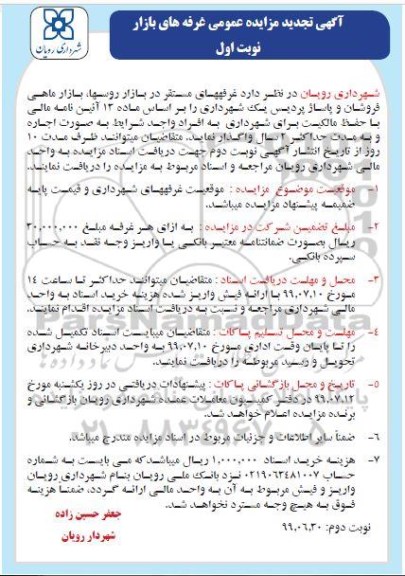 آگهی تجدید مزایده عمومی غرفه های بازار
نوبت اول
شهرداری رویان
شهرداری رویان در نظر دارد غرفه‌های مستقر در بازار روسها، بازار ماهی
فروشان و پاساژ پردیس یک شهرداری را بر اساس ماده ۱۳ آئین نامه مالی
با حفظ مالکیت برای شهرداری به افراد واجد شرایط به صورت اجاره
و به مدت حداکثر ۲ سال واگذار نماید. متقاضیان میتوانند ظرف مدت ۱۰
روز از تاریخ انتشار آگهی نوبت دوم جهت دریافت اسناد مزایده به واحد
مالی شهرداری رویان مراجعه و اسناد مربوط به مزایده را دریافت نمایند.
۱- موقعیت موضوع مزایده : موقعیت غرفه‌های شهرداری و قیمت پایه
ضمیمه پیشنهاد مزایده میباشد.
۲- مبلغ تضمین شرکت در مزایده : به ازای هر غرفه مبلغ ۲۰,۰۰۰,۰۰۰
ریال بصورت ضمانتنامه معتبر بانکی یا واریز وجه نقد به حساب
سپرده بانکی.
۳- محل و مهلت دریافت اسناد : متقاضیان میتوانند حداکثر تا ساعت ۱۴
مورخ ۹۹.۰۷.۱۰ با ارائه فیش واریز شده هزینه خرید اسناد به واحد
مالی شهرداری مراجعه و نسبت به دریافت اسناد مزایده اقدام نمایند.
۴- مهلت و محل تسلیم پاکات : متقاضیان میبایست اسناد تکمیل شده
را تا پایان وقت اداری مورخ ۹۹.۰۷.۱۰ به واحد دبیرخانه شهرداری
تحویل و رسید مربوطه را دریافت نمایند.
۵- تاریخ و محل بازگشائی پاکات : پیشنهادات دریافتی در روز یکشنبه مورخ
۹۹.۰۷.۱۲ در دفتر کمیسیون معاملات عمده شهرداری رویان بازگشائی و
برنده مزایده اعلام خواهد شد.
۶- ضمناً سایر اطلاعات و جزئیات مربوط در اسناد مزایده مندرج میباشد.
۷- هزینه خرید اسناد ۱,۰۰۰,۰۰۰ ریال میباشد که می بایست به شماره
حساب ۰۲۱۹۰۶۳۴۸۱۰۰۷ نزد بانک ملی رویان بنام شهرداری رویان
واریز و فیش مربوط به آن به واحد مالی ارائه گردد، ضمنا هزینه
فوق به هیچ وجه مسترد نخواهد شد.
جعفر حسین زاده
شهردار رویان
نوبت دوم: ۹۹.۰۶.۳۰